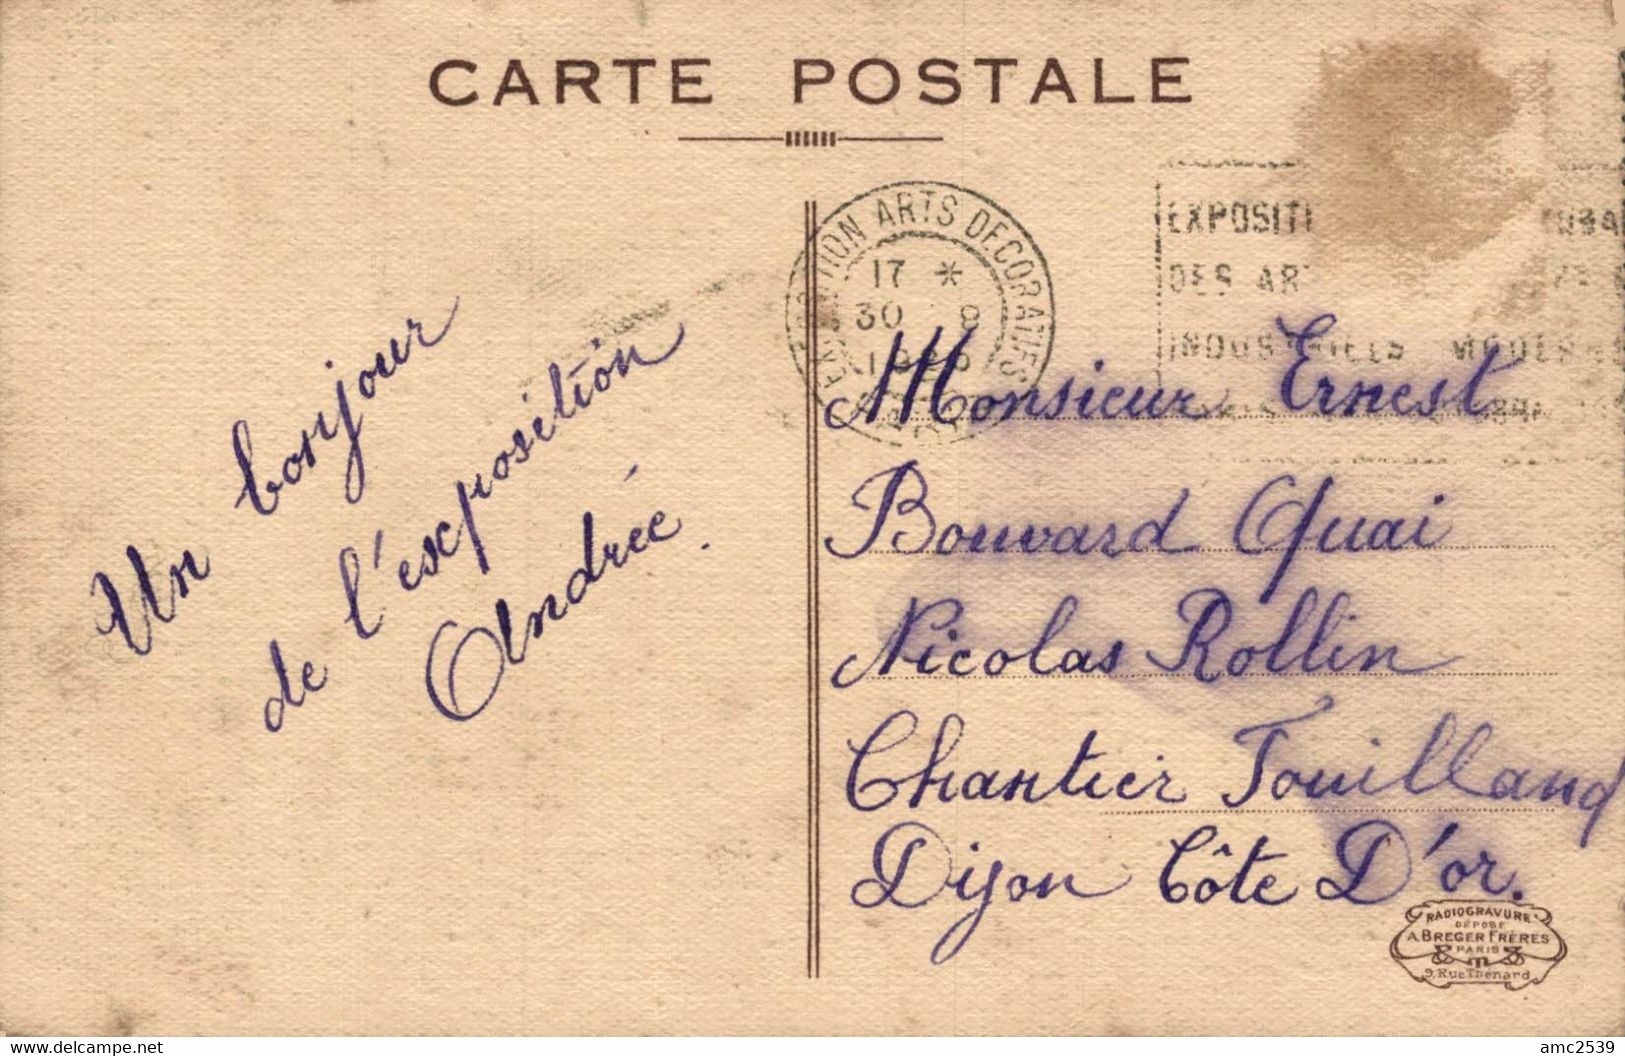 CARTE POSTALE
EXPOSITION ARTS DECORATIFS
17 *
30 8
EXPOSITI
DES ART
INDUSTRIELS MODERNES
Un bonjour
de l'exposition
Andrée.
Monsieur Ernest
Bouvard Quai
Nicolas Rollin
Chantier Touilland
Dijon Côte D'or.
RADIOGRAVURE
DÉPOSÉ
A. BREGER FRÈRES
PARIS
9, Rue Thénard
www.delcampe.net
amc2539